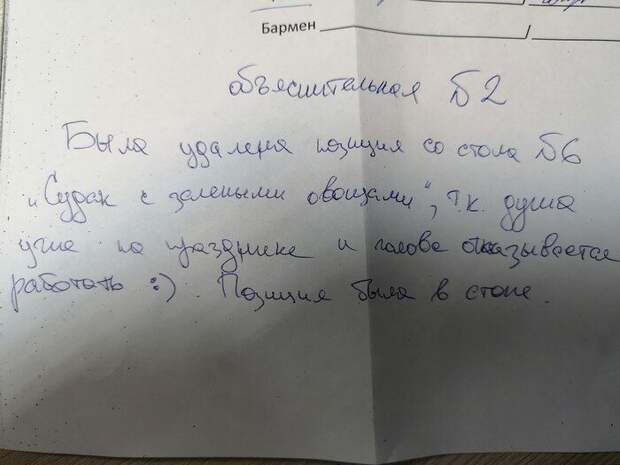 Бармен ____________ / ________
объяснительная №2
Была удалена позиция со стола №6
„Судак с зелеными овощами", т.к. душа
уже на празднике и голова отказывается
работать :) Позиция была в стопе.